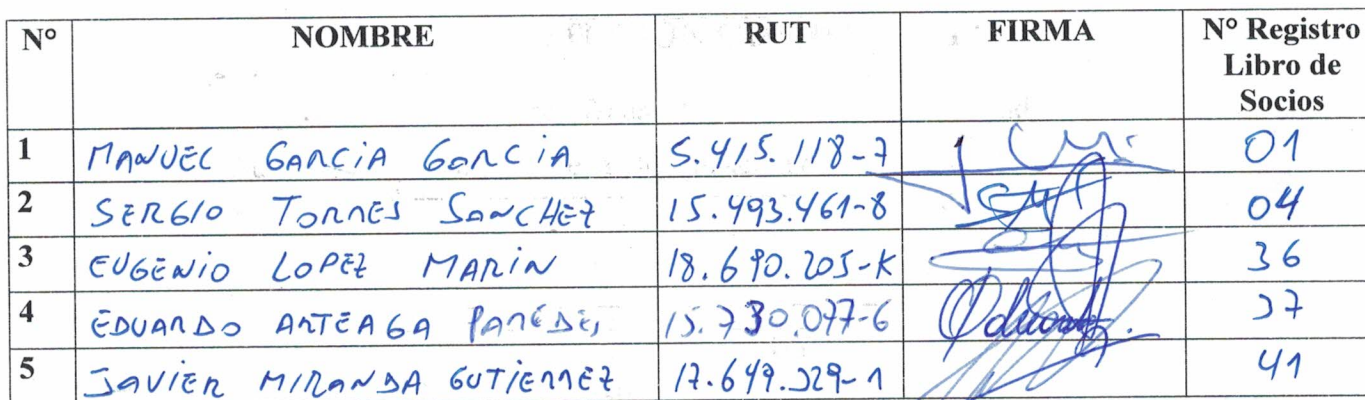 N° NOMBRE RUT FIRMA N° Registro
Libro de
Socios
1 MANUEL GARCIA GARCIA 5.415.118-7 01
2 SERGIO TORRES SANCHEZ 15.493.461-8 04
3 EUGENIO LOPEZ MARIN 18.690.205-K 36
4 EDUARDO ARTEAGA PAREDES 15.730.077-6 37
5 JAVIER MIRANDA GUTIERREZ 17.649.329-1 41